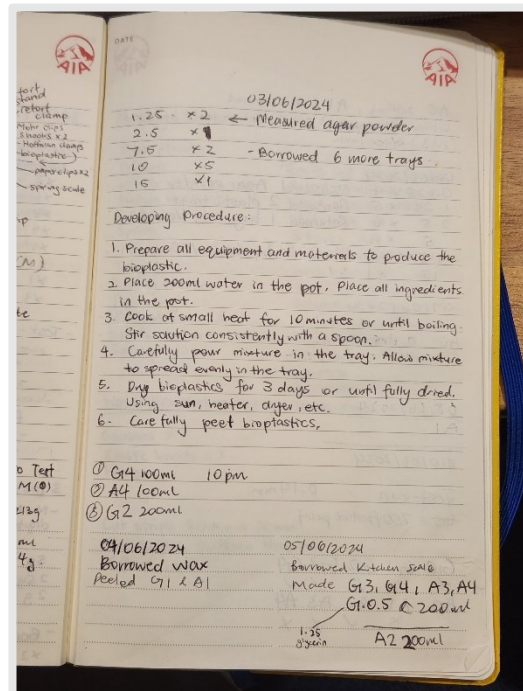 AIA
stand
retort
clamp
Mohr clips
S hooks x2
Hoffman clamps
(bioplastic)
paper clips x2
spring scale
Test
213g
4g
DATE
AIA
03/06/2024
1.25 x2 ← Measured agar powder
2.5 x1
7.5 x2 - Borrowed 6 more trays.
10 x5
15 x1
Developing Procedure:
1. Prepare all equipment and materials to produce the
bioplastic.
2. Place 200ml water in the pot. Place all ingredients
in the pot.
3. Cook at small heat for 10 minutes or until boiling.
Stir solution consistently with a spoon.
4. Carefully pour mixture in the tray. Allow mixture
to spread evenly in the tray.
5. Dry bioplastics for 3 days or until fully dried.
Using sun, heater, dryer, etc.
6. Carefully peel bioplastics,
① G4 100ml 10pm
② A4 100ml
③ G2 200ml
04/06/2024
Borrowed wax
Peeled G1 & A1
05/06/2024
Borrowed Kitchen scale
Made G3, G4, A3, A4
G.0.5 C 200ml
1.25
glycerin
A2 200ml